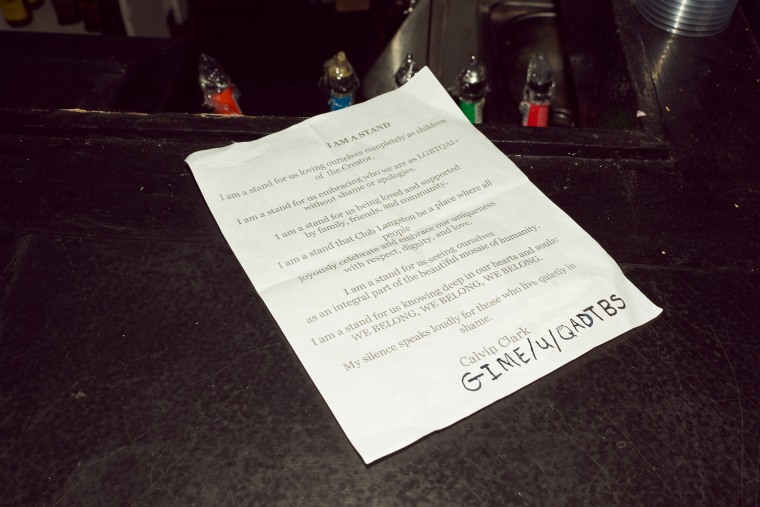 I AM A STAND
I am a stand for us loving ourselves completely as children
of the Creator.
I am a stand for us embracing who we are as LGBTQAI-
without shame or apologies.
I am a stand for us being loved and supported
by family, friends, and community.
I am a stand that Club Langston be a place where all
people
joyously celebrate and embrace our uniqueness
with respect, dignity, and love.
I am a stand for us seeing ourselves
as an integral part of the beautiful mosaic of humanity.
I am a stand for us knowing deep in our hearts and souls:
WE BELONG, WE BELONG, WE BELONG.
My silence speaks loudly for those who live quietly in
shame.
Calvin Clark
GIME/U/QADTBS